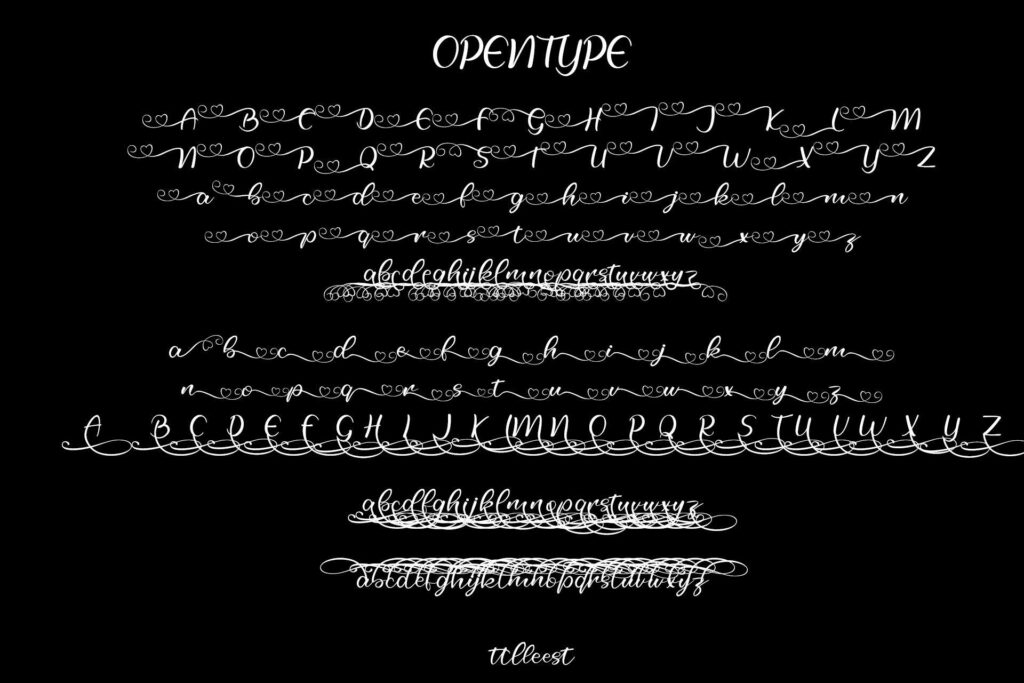 OPENTYPE
A B C D E F G H I J K L M
N O P Q R S T U V W X Y Z
a b c d e f g h i j k l m n
o p q r s t u v w x y z
abcdefghijklmnopqrstuvwxyz
a b c d e f g h i j k l m
n o p q r s t u v w x y z
A B C D E F G H I J K L M N O P Q R S T U V W X Y Z
abcdefghijklmnopqrstuvwxyz
abcdefghijklmnopqrstuvwxyz
ttlleest